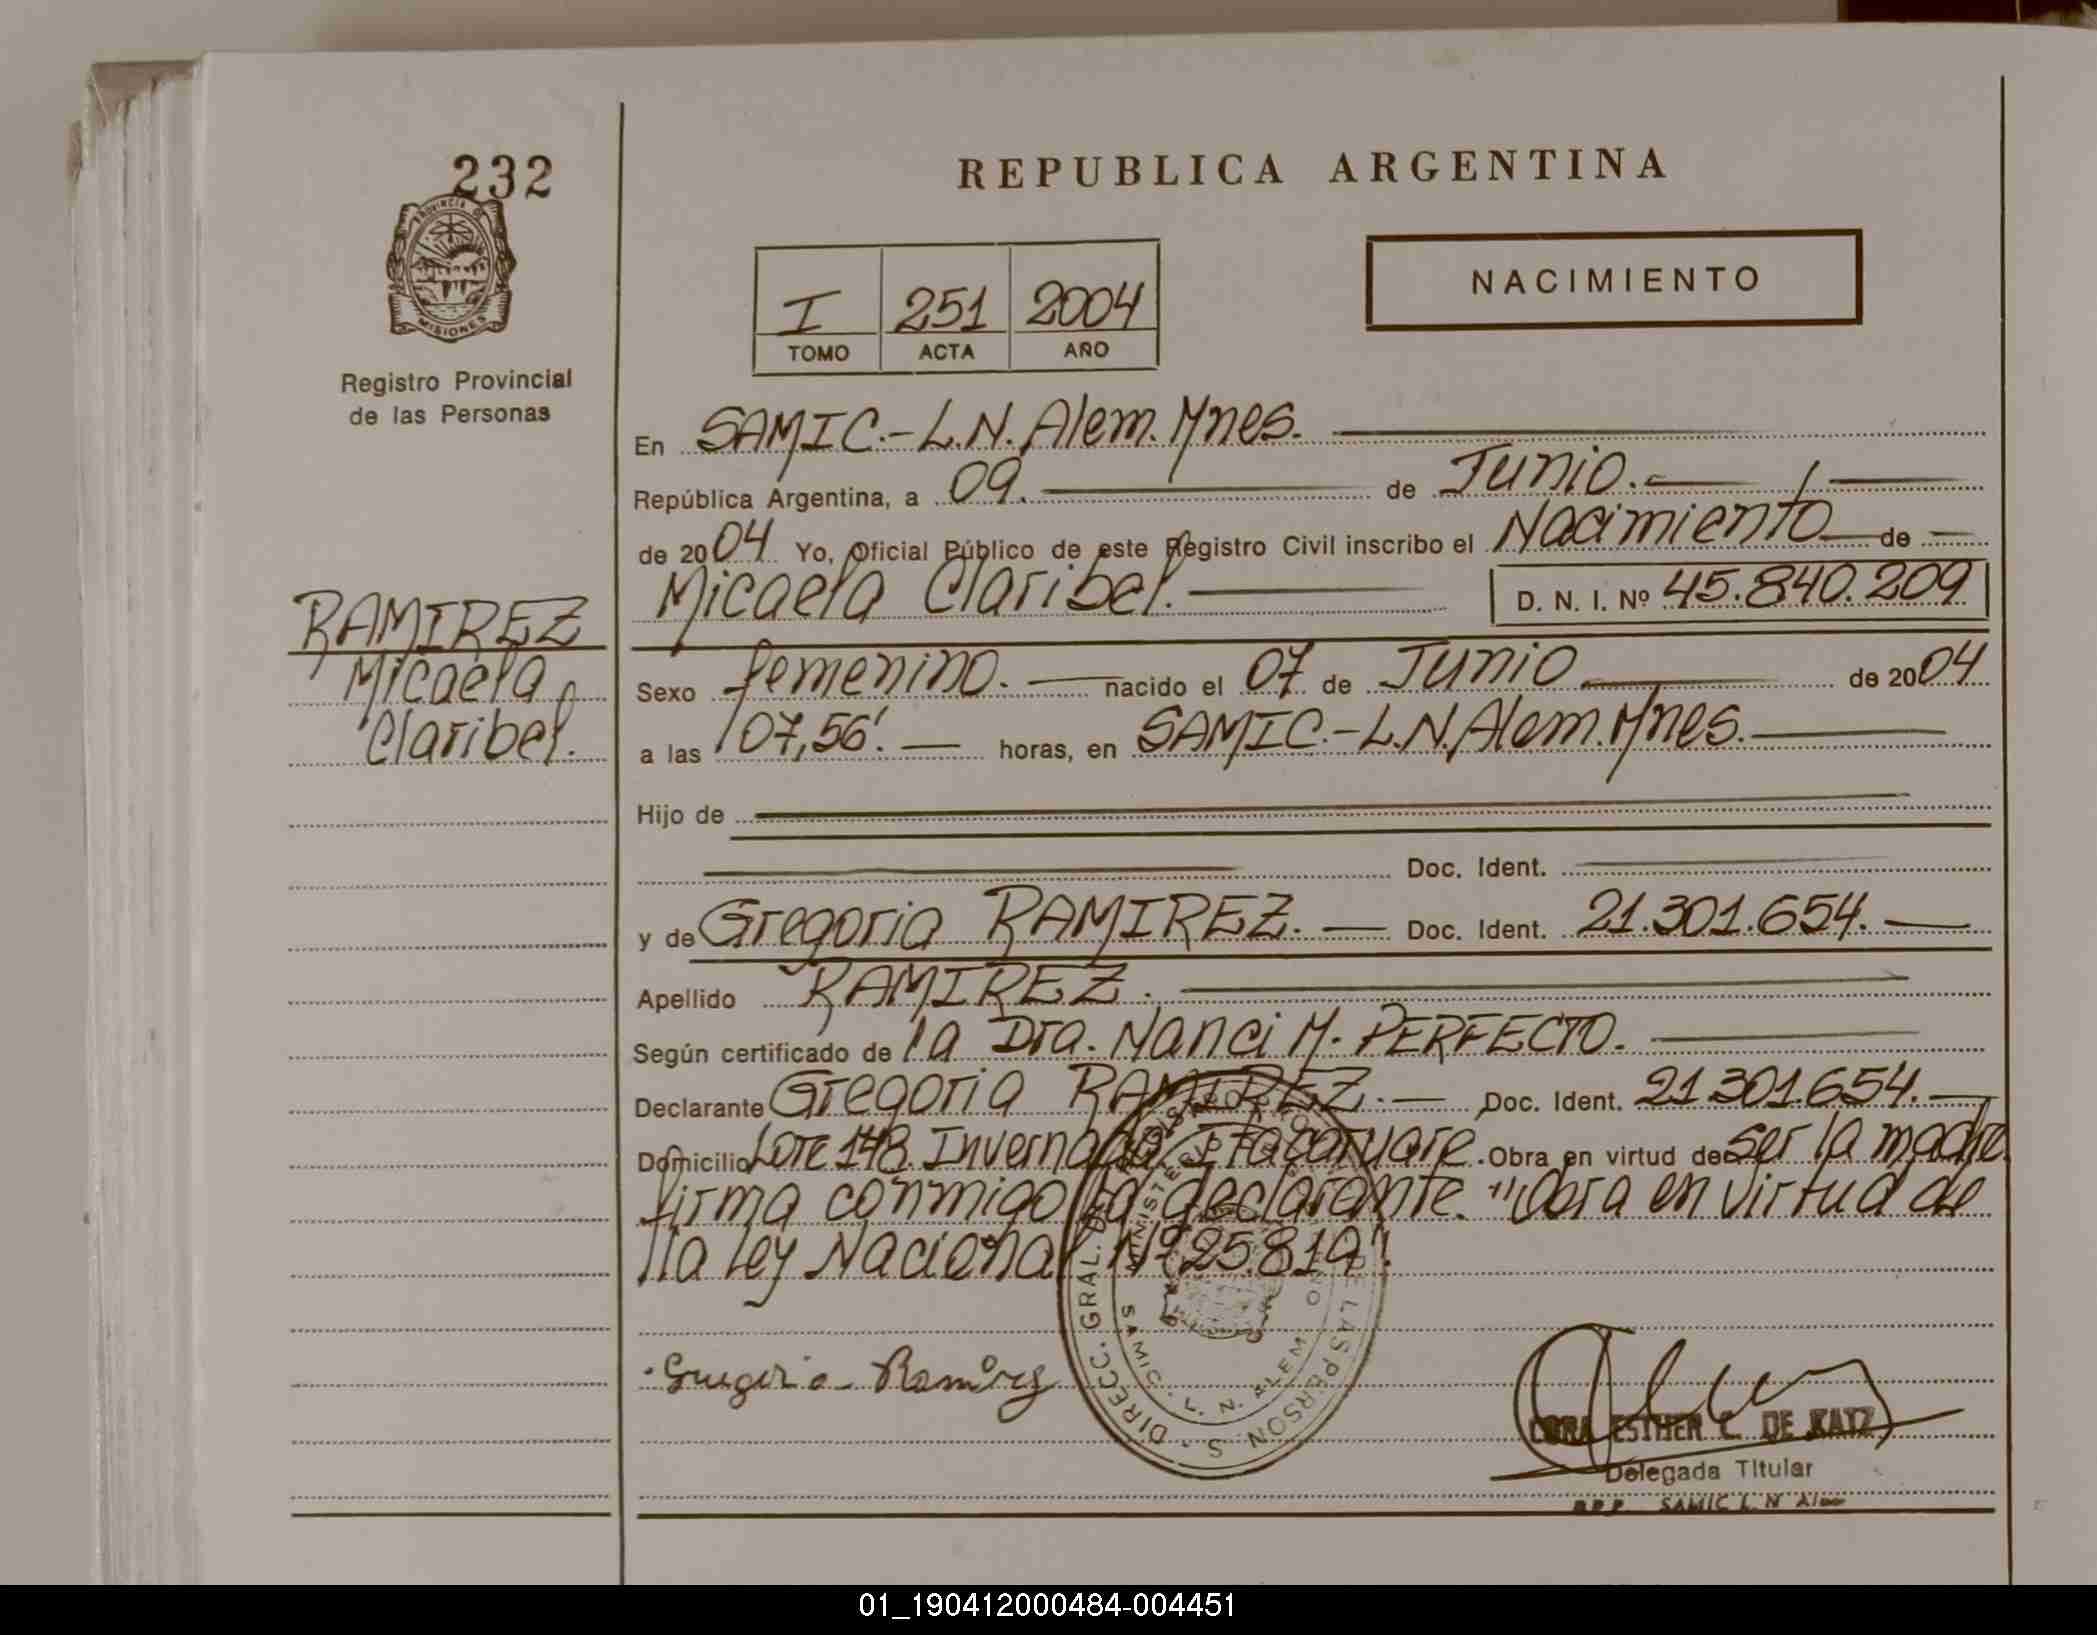 232
PROVINCIA DE
MISIONES
Registro Provincial
de las Personas
RAMIREZ
Micaela
Claribel.
REPUBLICA ARGENTINA
I 251 2004
TOMO ACTA AÑO
NACIMIENTO
En SAMIC.-L.N. Alem. Mnes.
República Argentina, a 09. de Junio.
de 2004 Yo, Oficial Público de este Registro Civil inscribo el Nacimiento de
Micaela Claribel. D. N. I. Nº 45.840.209
Sexo femenino. nacido el 07 de Junio de 2004
a las 07,56'. horas, en SAMIC.-L.N. Alem. Mnes.
Hijo de
Doc. Ident.
y de Gregoria RAMIREZ. Doc. Ident. 21.301.654.
Apellido RAMIREZ.
Según certificado de la Dra. Nanci M. PERFECTO.
Declarante Gregoria RAMIREZ. Doc. Ident. 21.301.654.
Domicilio Lote 148. Invernada Itacaruare. Obra en virtud de ser la madre
firma conmigo la declarante. "Obra en virtud de
la Ley Nacional Nº 25.819".
DIRECC. GRAL. DE LAS PERSONAS
SAMIC. L. N. ALEM
Gregoria Ramirez
ESTHER C. DE KATZ
Delegada Titular
SAMIC L. N. Alem
01_190412000484-004451